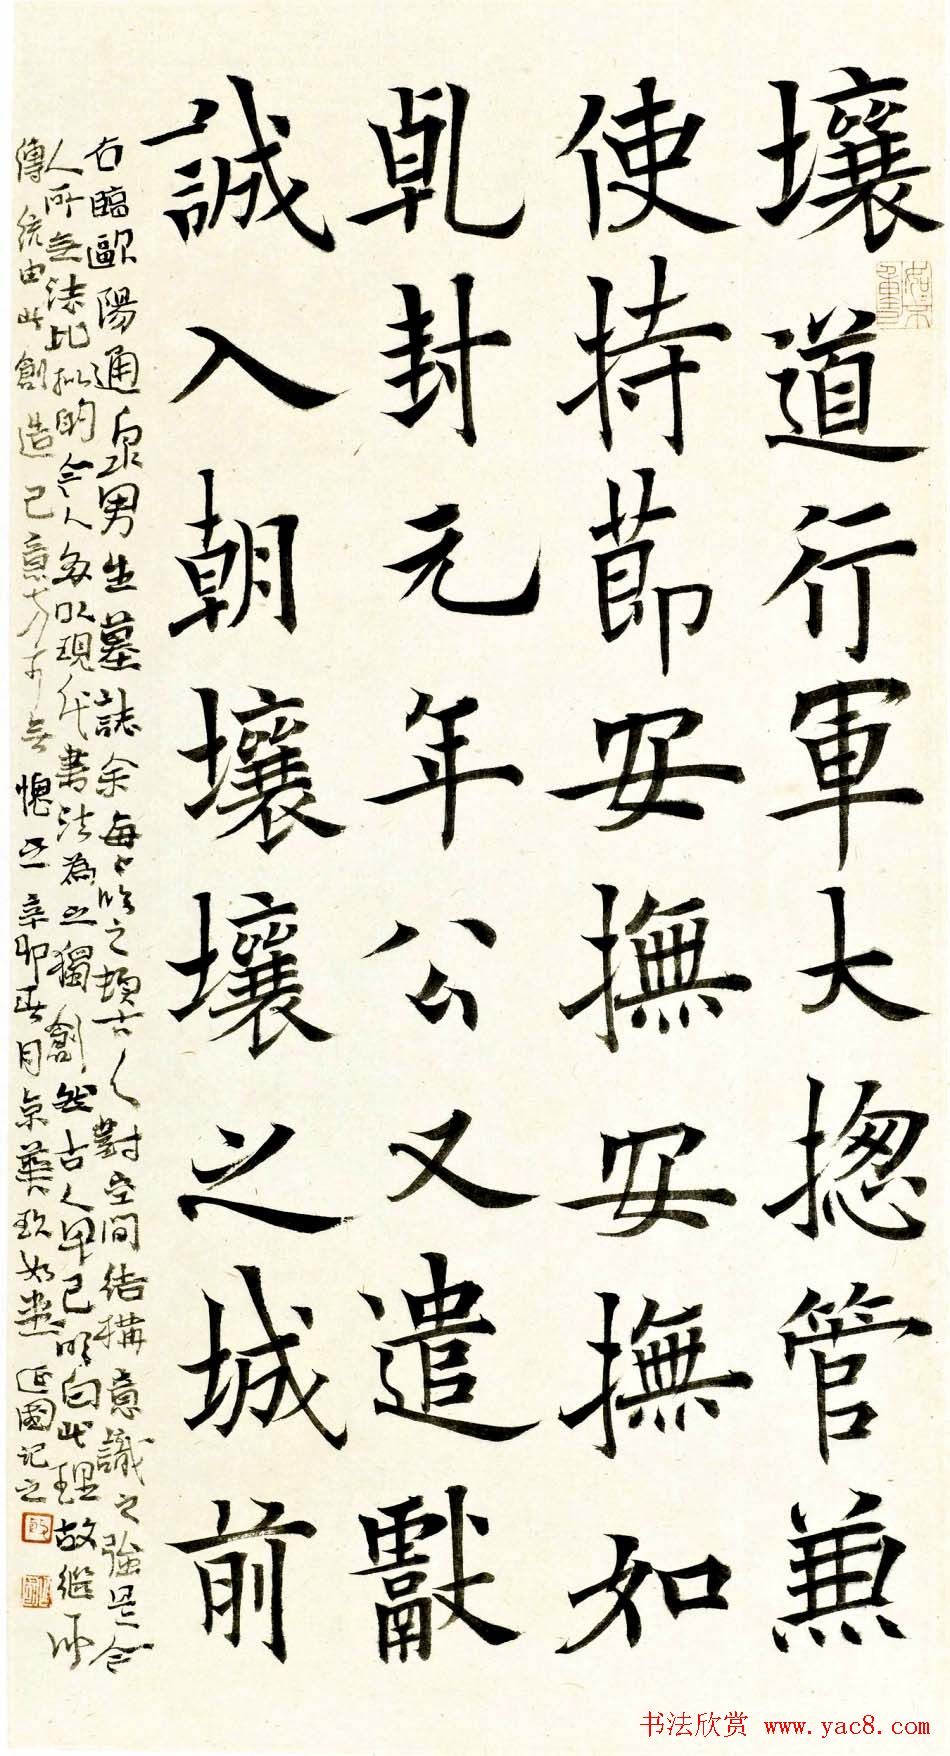 壤道行軍大揔管兼
使持莭安撫安撫如
乹封元年公又遣獻
誠入朝壤壤之城前
右臨歐陽通泉男生墓誌余每々臨之古人對空間結構意識之強是今
人所無法比擬的今人多以現代書法為之獨創然古人早已明白此理故繼承
傳統由此創造己意方可無愧之辛卯月京華玖如堂延國記之
书法欣赏 www.yac8.com